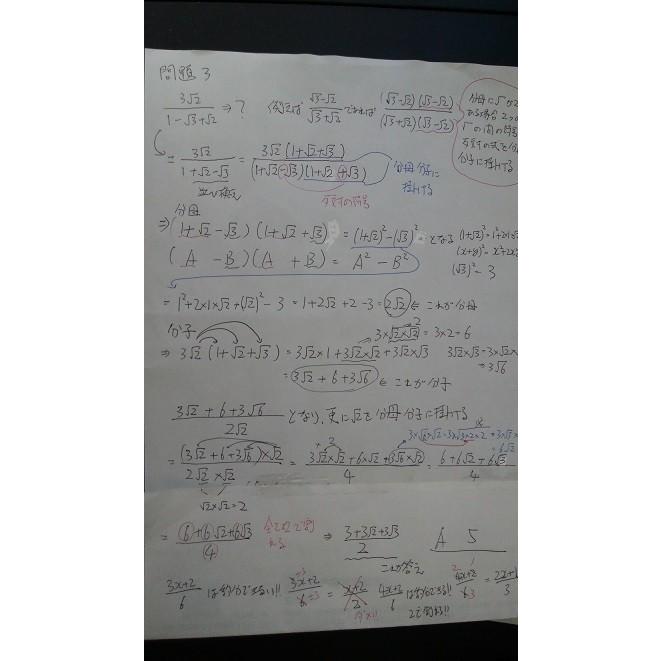 問題 3
3√2 / (1-√3+√2) ⇒ ? 例えば (√3-√2)/(√3+√2) であれば (√3-√2)(√3-√2) / (√3+√2)(√3-√2)
分母に√が2
ある場合 2つの
√の間の符号
反対の式で分
分子に掛ける
= 3√2 / (1+√2-√3) = 3√2(1+√2+√3) / (1+√2-√3)(1+√2+√3) 分母分子に
掛ける
並び換え 反対の符号
分母
⇒ (1+√2-√3)(1+√2+√3) = (1+√2)²-(√3)² となる (1+√2)²=1²+2×1×√
(A - B)(A + B) = A² - B² (x+y)²=x²+2x
(√3)²=3
= 1²+2×1×√2+(√2)²-3 = 1+2√2+2-3 = 2√2 ⇐ これが分母
分子 3×√2×√2 = 3×2 = 6
⇒ 3√2(1+√2+√3) = 3√2×1+3√2×√2+3√2×√3 3√2×√3=3×√2×
=3√6
= 3√2+6+3√6 ⇐ これが分子
(3√2+6+3√6) / 2√2 となり、更に√2を分母分子に掛ける
= (3√2+6+3√6)×√2 / 2√2×√2 = (3√2×√2+6×√2+3√6×√2) / 4 = (6+6√2+6√3) / 4
√2×√2=2
= (6+6√2+6√3) / 4 全て2で割
れる ⇒ (3+3√2+3√3) / 2 A 5
これが答え
(3x+2)/6 は約分できない!! (3x+2)/6 = (x+2)/2 ダメ!! (4x+2)/6 は約分できる!! (4x+2)/6 = (2x+1)/3
2で割れる!!